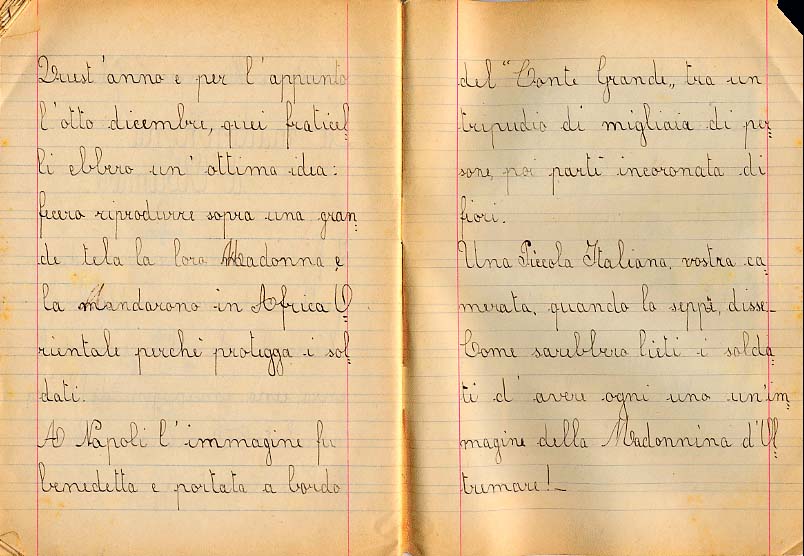 Quest'anno e per l'appunto
l'otto dicembre, quei fraticel=
li ebbero un'ottima idea:
fecero riprodurre sopra una gran=
de tela la loro Madonna e
la mandarono in Africa O=
rientale perchè protegga i sol=
dati.
A Napoli l'immagine fu
benedetta e portata a bordo
del "Conte Grande„ tra un
tripudio di migliaia di per=
sone, poi partì incoronata di
fiori.
Una Piccola Italiana, vostra ca=
merata, quando lo seppe, disse_
Come sarebbero lieti i solda=
ti d'avere ogni uno un'im=
magine della Madonnina d'Ol=
tremare!_